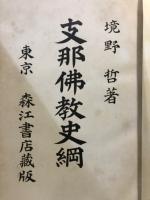 境野 哲著
支那佛教史綱
東京 森江書店藏版